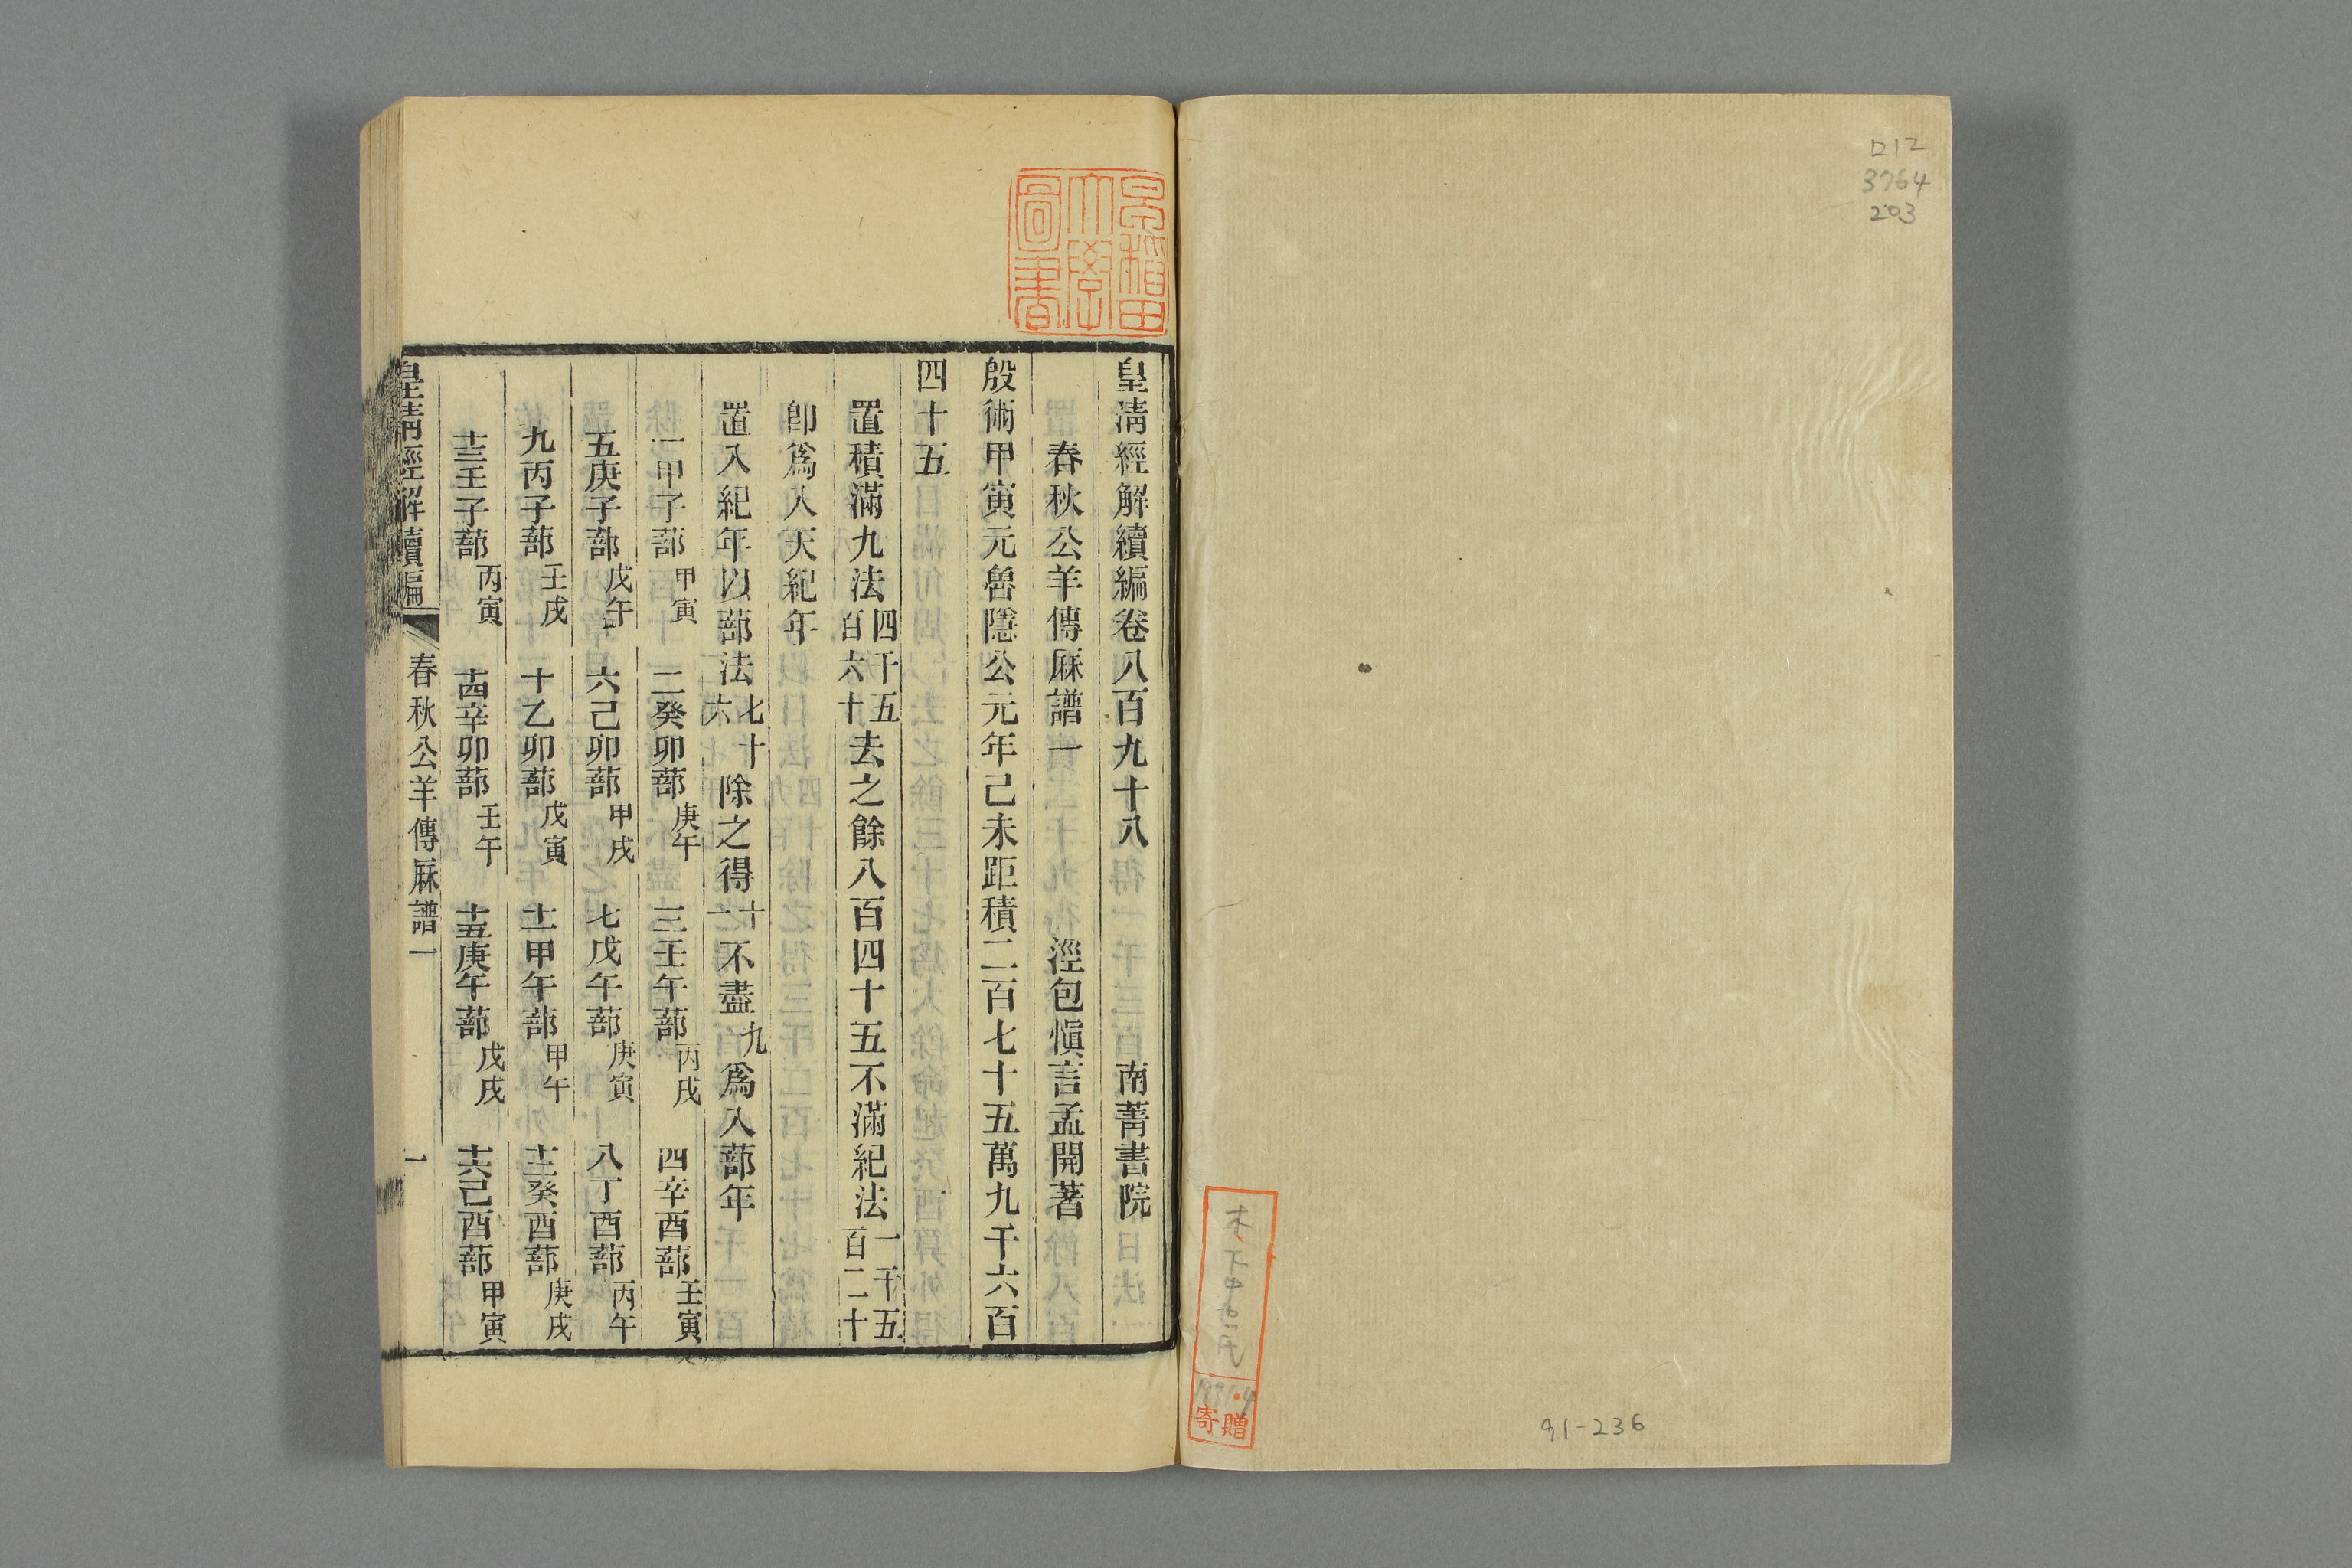 ロ12
3764
203
91-236
寄贈
早稲田
大學
圖書
皇清經解續編卷八百九十八 南菁書院
春秋公羊傳厤譜一 涇包愼言孟開著
殷術甲寅元魯隱公元年己未距積二百七十五萬九千六百
四十五
置積滿九法四千五百六十去之餘八百四十五不滿紀法一千五百二十
卽爲入天紀年
置入紀年以蔀法七十六除之得十一不盡九爲入蔀年
一甲子蔀甲寅 二癸卯蔀庚午 三壬午蔀丙戌 四辛酉蔀壬寅
五庚子蔀戊午 六己卯蔀甲戌 七戊午蔀庚寅 八丁酉蔀丙午
九丙子蔀壬戌 十乙卯蔀戊寅 十一甲午蔀甲午 十二癸酉蔀庚戌
十三壬子蔀丙寅 十四辛卯蔀壬午 十五庚午蔀戊戌 十六己酉蔀甲寅
皇清經解續編 春秋公羊傳厤譜一 一